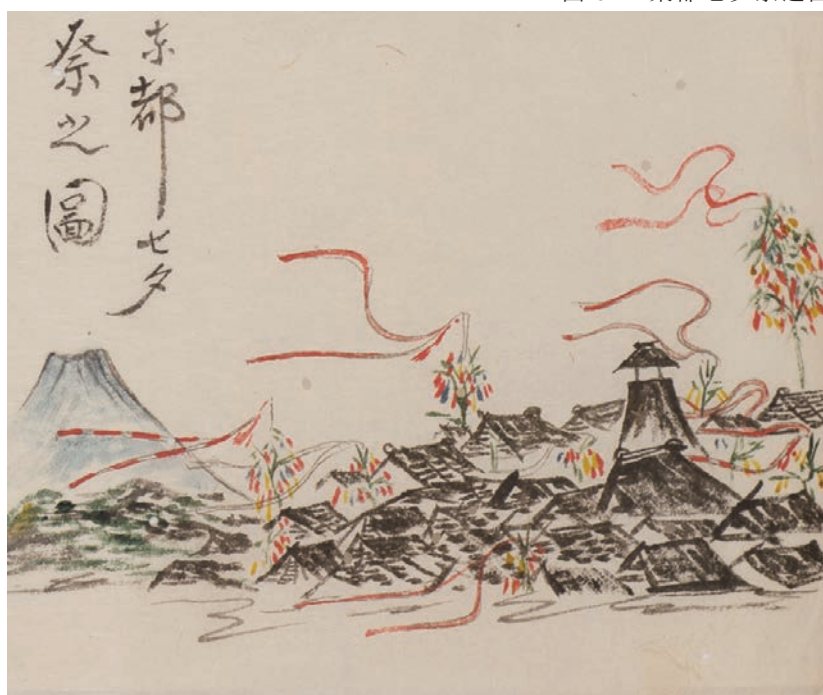 東都七夕
祭之圖